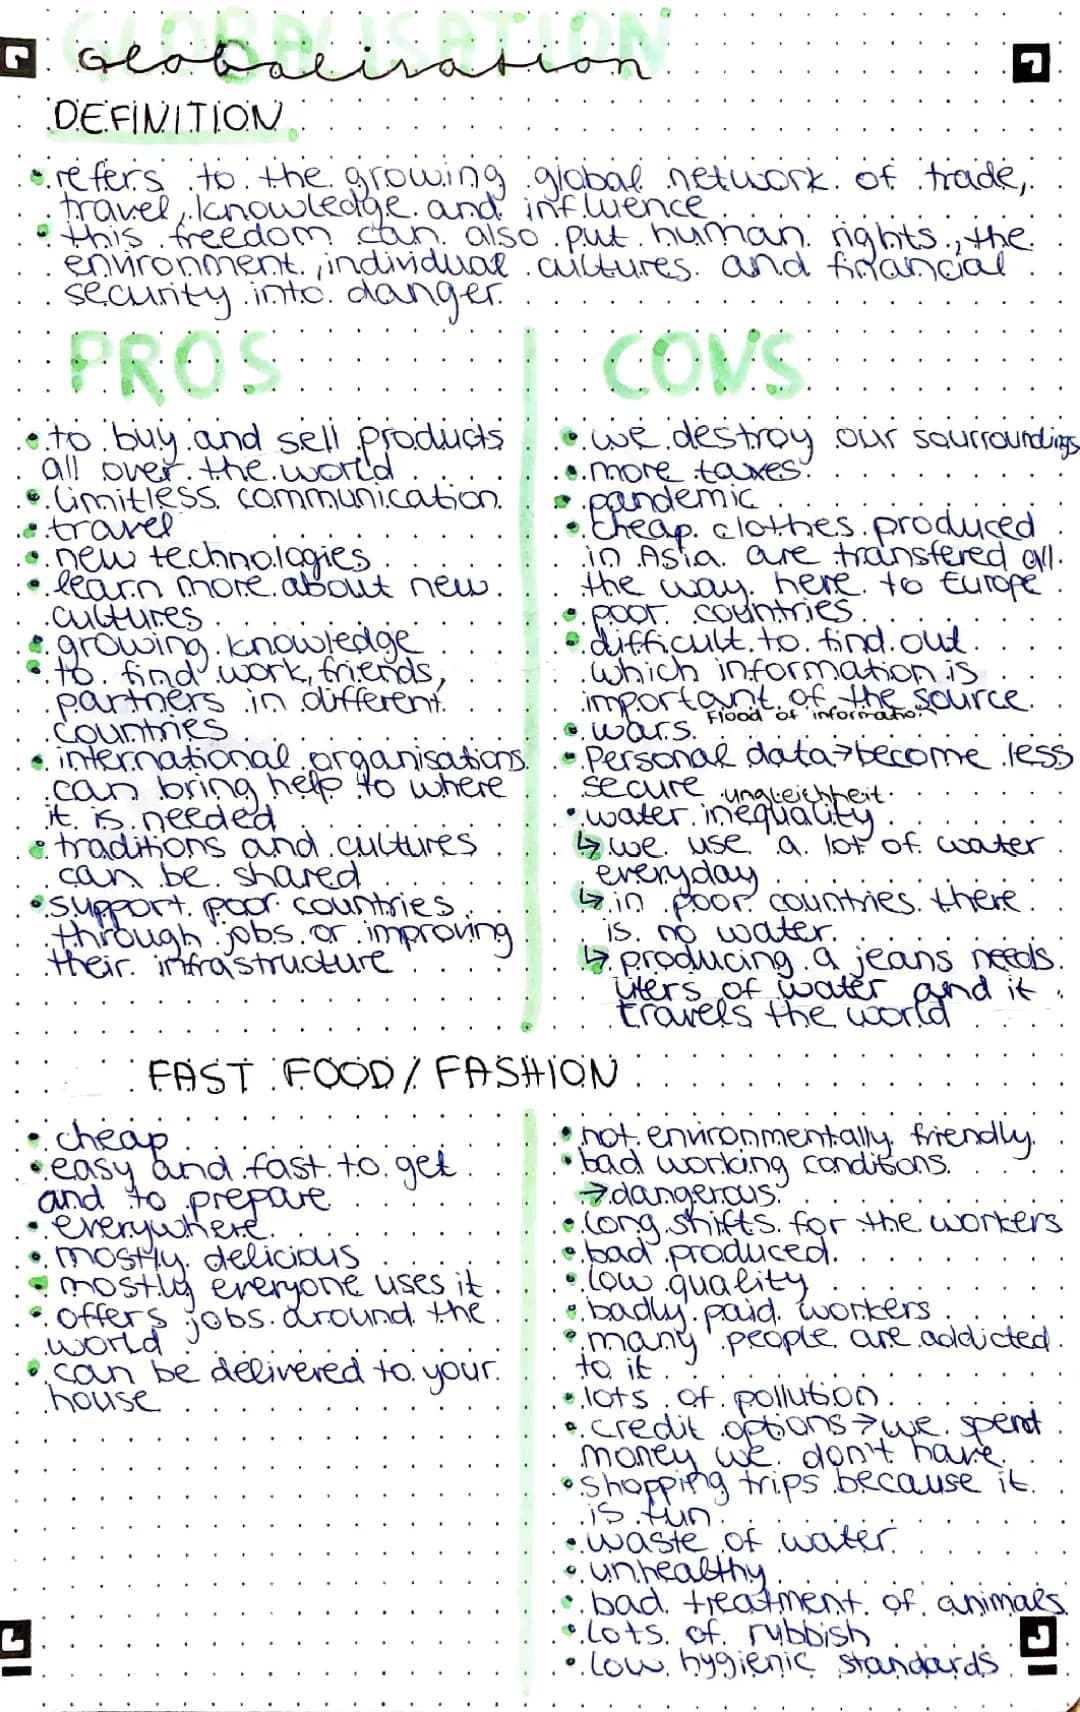 GLOBALISATION
Globalisation
DEFINITION
• refers to the growing global network of trade,
travel, knowledge and influence
• this freedom can also put human rights, the
environment, individual cultures and financial
security into danger
PROS
• to buy and sell products
all over the world
• limitless communication
• travel
• new technologies
• learn more about new
cultures
• growing knowledge
• to find work, friends,
partners in different
countries
• international organisations
can bring help to where
it is needed
• traditions and cultures
can be shared
• support poor countries
through jobs or improving
their infrastructure
CONS
• we destroy our sourroundings
• more taxes
• pandemic
• cheap clothes produced
in Asia are transfered all
the way here to Europe
• poor countries
• difficult to find out
which information is
important of the source
Flood of information
• wars
• Personal data → become less
secure
ungleichheit
• water inequality
↳ we use a lot of water
everyday
↳ in poor countries there
is no water
↳ producing a jeans needs
liters of water and it
travels the world
FAST FOOD / FASHION
• cheap
• easy and fast to get
and to prepare
• everywhere
• mostly delicious
• mostly everyone uses it
• offers jobs around the
world
• can be delivered to your
house
• not environmentally friendly
• bad working conditions
→ dangerous
• long shifts for the workers
• bad produced
• low quality
• badly paid workers
• many people are addicted
to it
• lots of pollution
• credit options → we spend
money we don't have
• shopping trips because it
is fun
• waste of water
• unhealthy
• bad treatment of animals
• lots of rubbish
• low hygienic standards